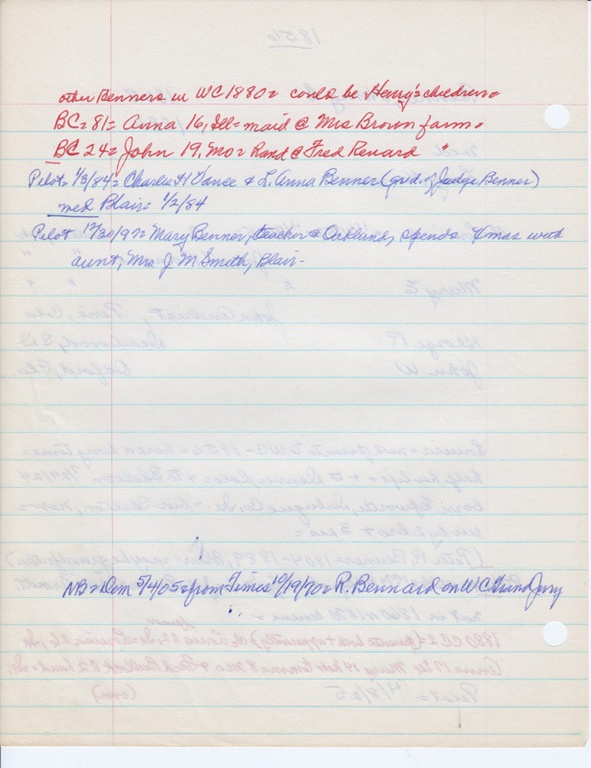 other Benners in WC 1880= could be Henry's children=
BC=81= Anna 16, Ill= maid @ Mrs Brown farm=
BC 24= John 19, Mo= Rand @ Fred Renard "
Pilot= 1/3/84= Charlie H Vance & L. Anna Benner (grd. of Judge Benner)
med Blair= 1/2/84
Pilot 12/30/97= Mary Benner, teacher @ Oakland, spends Xmas with
aunt, Mrs J M Smith, Blair-
NB=Dem 5/4/05=from Times 10/19/70= R. Bennard on WC Grand Jury